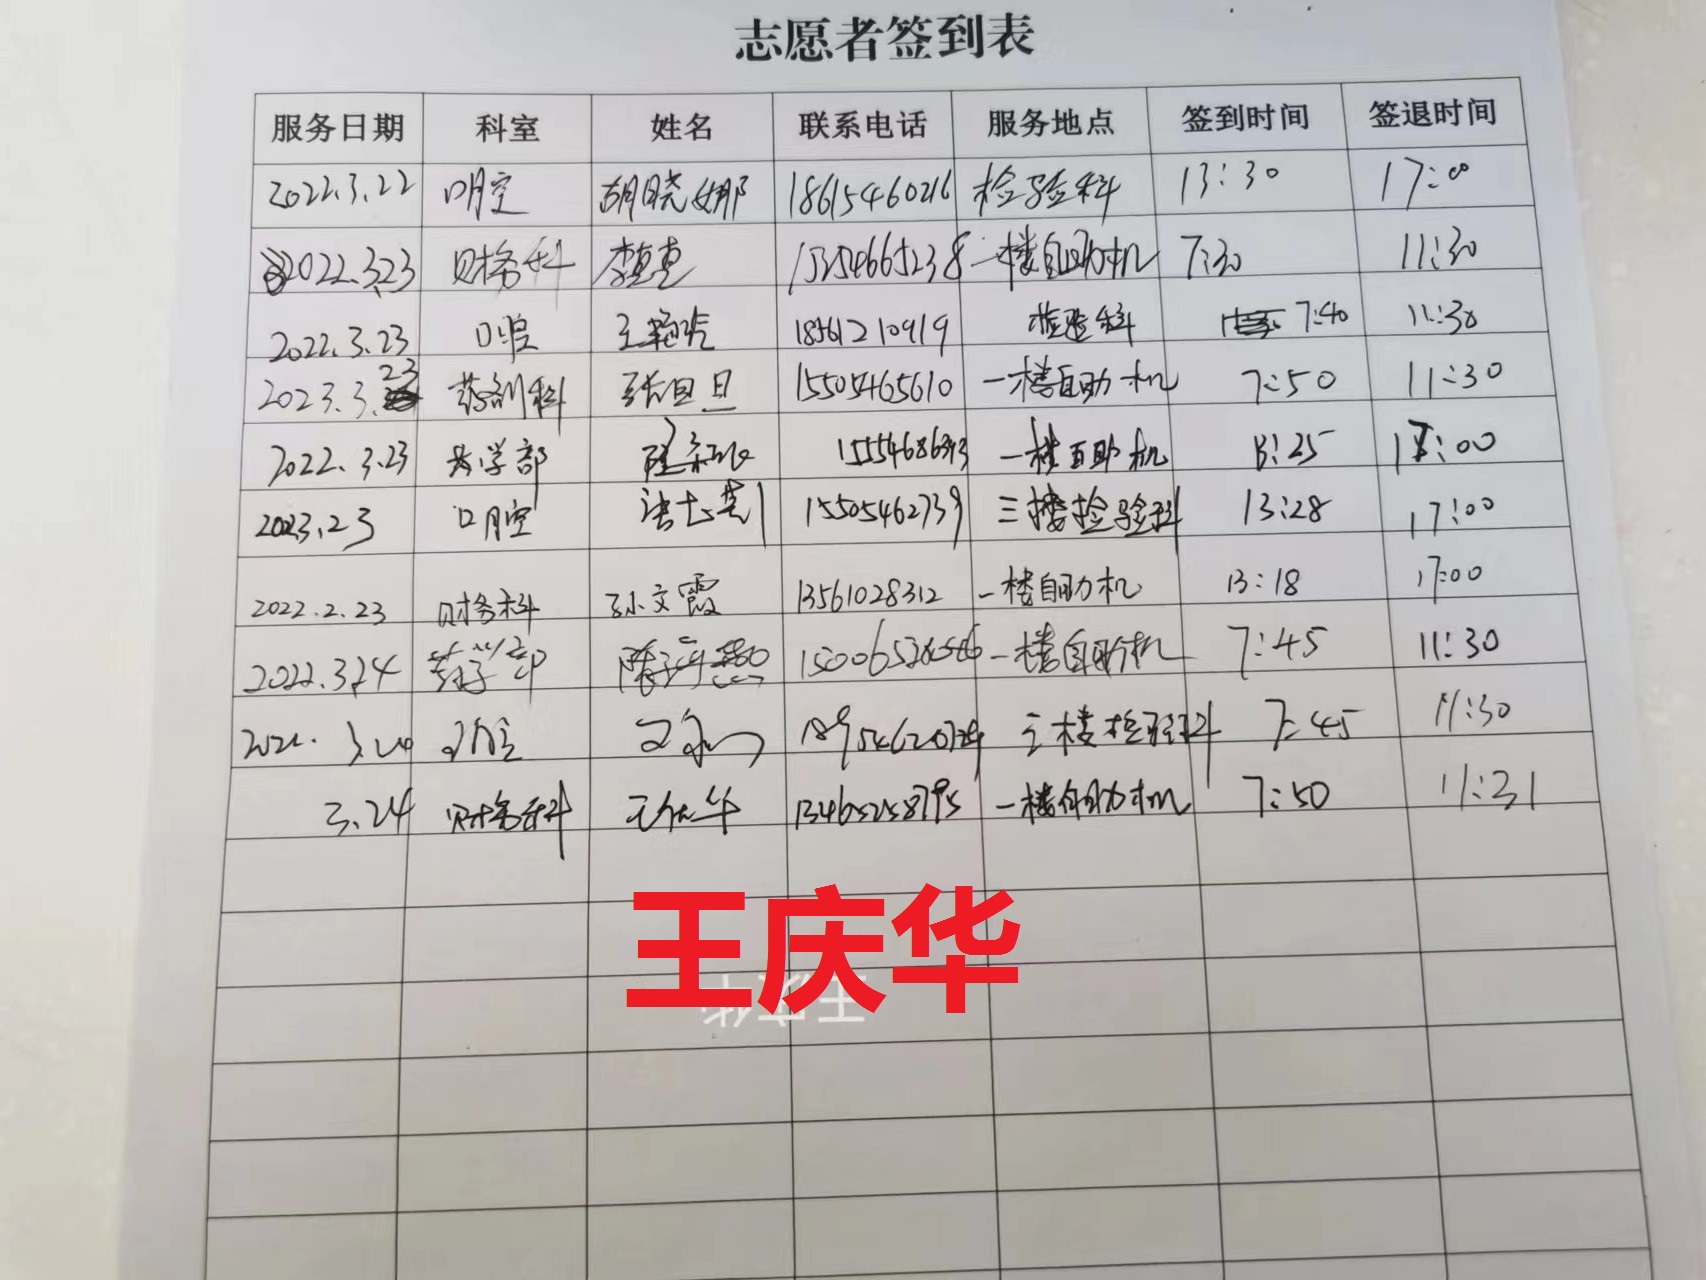 志愿者签到表
服务日期 科室 姓名 联系电话 服务地点 签到时间 签退时间
2022.3.22 口腔 胡晓娜 18615460216 检验科 13:30 17:00
2022.3.23 财务科 15254665238 一楼自助机 7:30 11:30
2022.3.23 口腔 王艳玲 18561210919 检验科 7:40 11:30
2023.3.23 药剂科 张旦旦 15505465610 一楼自助机 7:50 11:30
2022.3.23 药学部 一楼自助机 13:25 17:00
2023.23 口腔 15505462739 三楼检验科 13:28 17:00
2022.2.23 财务科 孙文霞 13561028312 一楼自助机 13:18 17:00
2022.3.24 药学部 一楼自助机 7:45 11:30
口腔 三楼检验科 7:45 11:30
3.24 财务科 王庆华 一楼自助机 7:50 11:31
王庆华